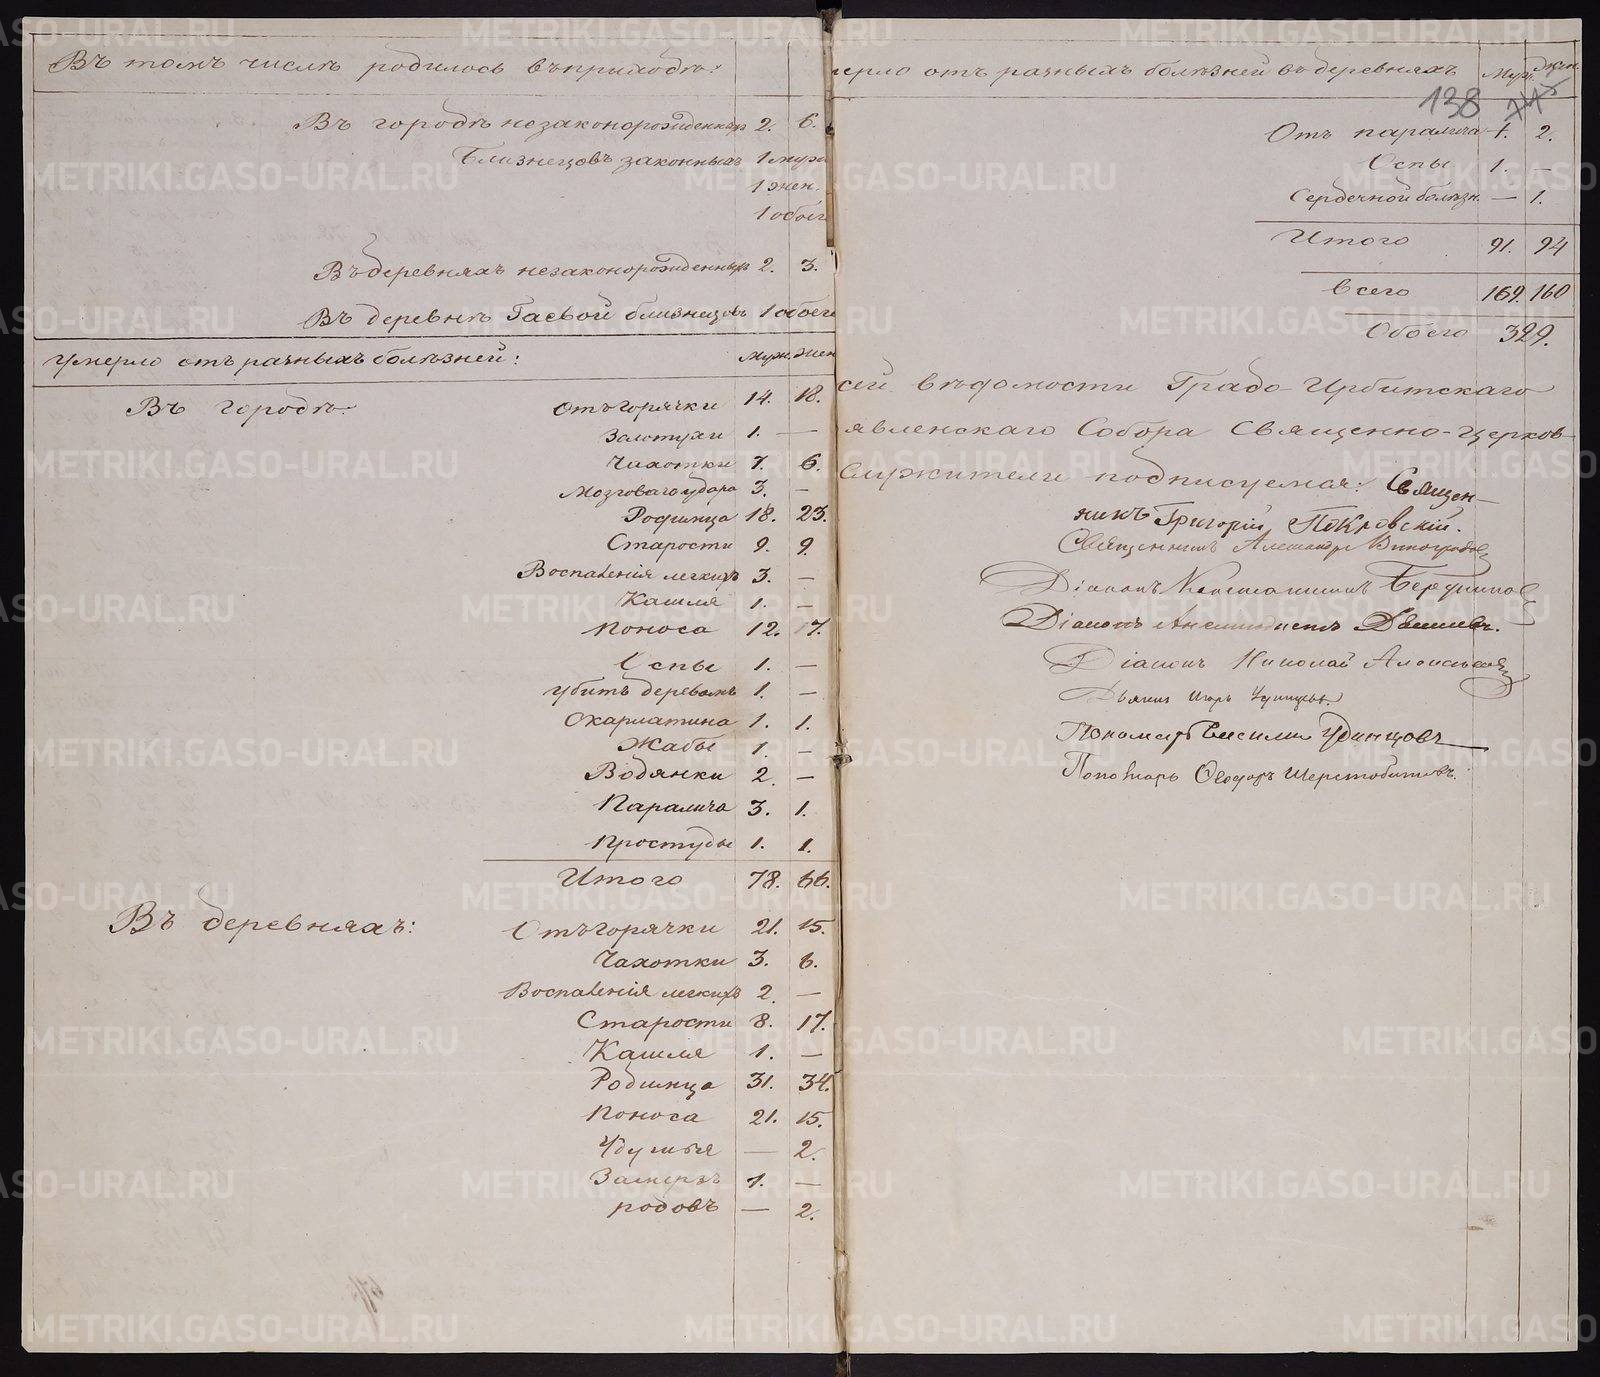 Въ томъ числѣ родилось въ приходѣ:
Въ городѣ незаконорожденныхъ 2. 6.
Близнецовъ законныхъ 1 муж
1 жен.
1 обоег
Въ деревняхъ незаконорожденныхъ 2. 3.
Въ деревнѣ Гаевой близнецовъ 1 обоего
Умерло отъ разныхъ болѣзней: Муж. Жен
Въ городѣ: Отъ горячки 14. 18.
Золотухи 1. —
Чахотки 7. 6.
Мозговаго удара 3. —
Родимца 18. 23.
Старости 9. 9.
Воспаленія легкихъ 3. —
Кашля 1. —
Поноса 12. 17.
Оспы 1. —
Убитъ деревомъ 1. —
Скарлатина 1. 1.
Жабы 1. —
Водянки 2. —
Паралича 3. 1.
Простуды 1. 1.
Итого 78. 66.
Въ деревняхъ: Отъ горячки 21. 15.
Чахотки 3. 6.
Воспаленія легкихъ 2. —
Старости 8. 17.
Кашля 1. —
Родимца 31. 34.
Поноса 21. 15.
Удушья — 2.
Замерзъ 1. —
родовъ — 2.
мерло отъ разныхъ болѣзней въ деревняхъ Муж. Жен.
138
Отъ паралича 1. 2.
Оспы 1. —
Сердечной болѣзн. — 1.
Итого 91. 94
Всего 169. 160
Обоего 329.
сей вѣдомости Градо-Ирбитскаго
явленскаго Собора Священно-церков-
служители подписуемся: Священ-
никъ Григорій Покровскій.
Священникъ Александръ Виноградовъ
Діаконъ Константинъ
Діаконъ
Діаконъ Николай
Дьячекъ Игорь
Пономарь Василій Удинцовъ
Пономарь Ѳеодоръ Шерстобитовъ.
METRIKI.GASO-URAL.RU